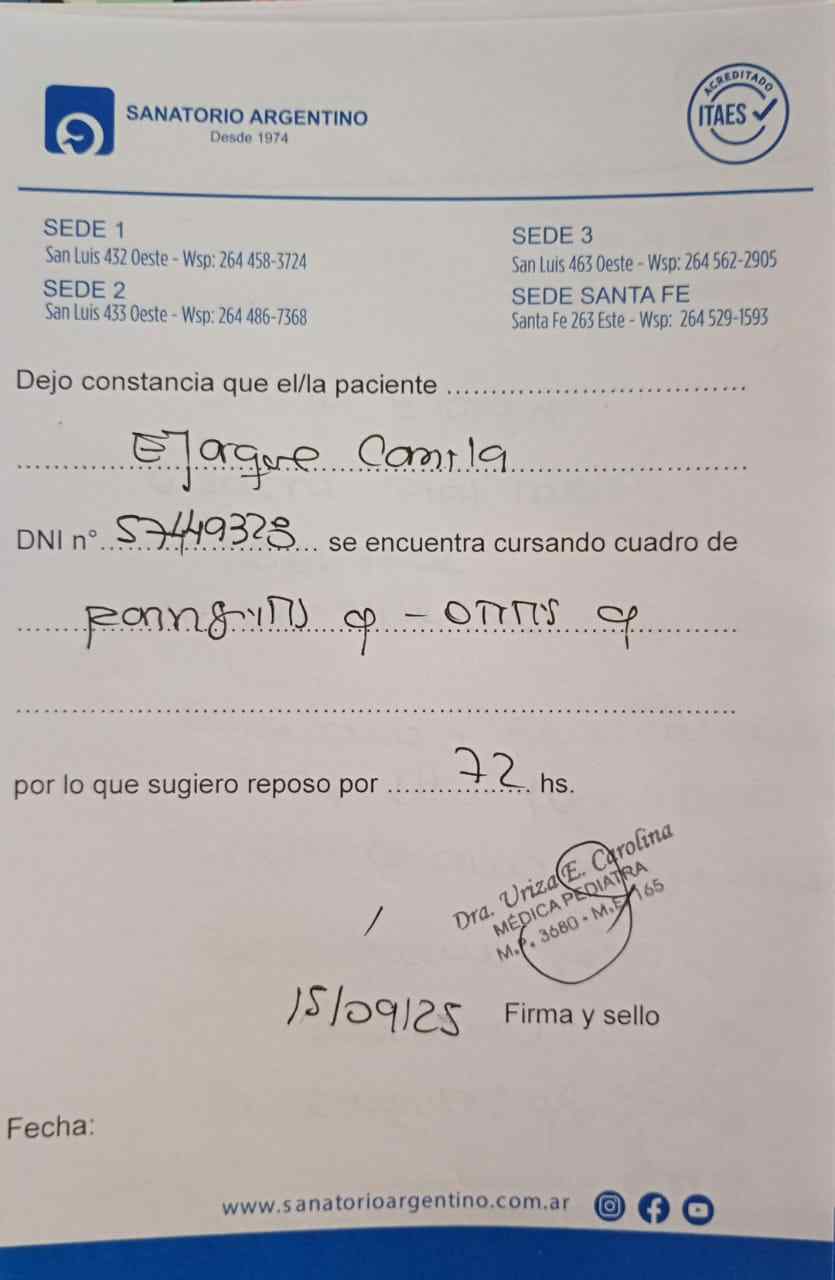 SANATORIO ARGENTINO
Desde 1974
ACREDITADO
ITAES
SEDE 1
San Luis 432 Oeste - Wsp: 264 458-3724
SEDE 2
San Luis 433 Oeste - Wsp: 264 486-7368
SEDE 3
San Luis 463 Oeste - Wsp: 264 562-2905
SEDE SANTA FE
Santa Fe 263 Este - Wsp: 264 529-1593
Dejo constancia que el/la paciente ................................
Ejarque Camila
DNI n° 57449328 se encuentra cursando cuadro de
faringitis - otitis
por lo que sugiero reposo por 72 hs.
Dra. Uriza E. Carolina
MÉDICA PEDIATRA
M.P. 3680 - M.E. 165
15/09/25 Firma y sello
Fecha:
www.sanatorioargentino.com.ar